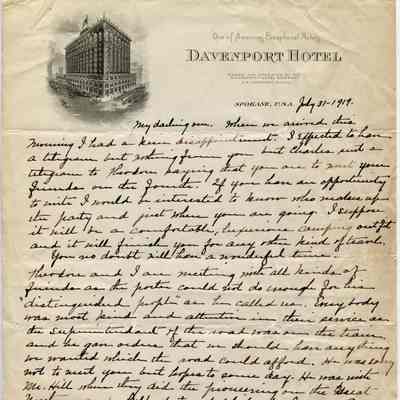 One of America's Exceptional Hotels
DAVENPORT HOTEL
SPOKANE, U.S.A. July 31-1919.
My darling one. When we arrived this
morning I had a keen disappointment. I expected to have
a telegram but nothing from you but Charles sent a
telegram to Theodore saying that you are to meet your
friends on the fourth. If you have an opportunity
to write I would be interested to know who makes up
the party and just where you are going. I suppose
it will be a comfortable, luxurious camping outfit
and it will finish you for any other kind of travel.
You no doubt will have a wonderful time.
Theodore and I are meeting with all kinds of
friends as the porter could not do enough for us
"distinguished people" as he called us. Every body
was most kind and attentive in their service as
the Superintendent of the road was on the train
and he gave orders that we should have anything
we wanted which the road could afford. He was sorry
not to meet you but hopes to some day. He was with
Mr. Hill when they did the pioneering on the Great